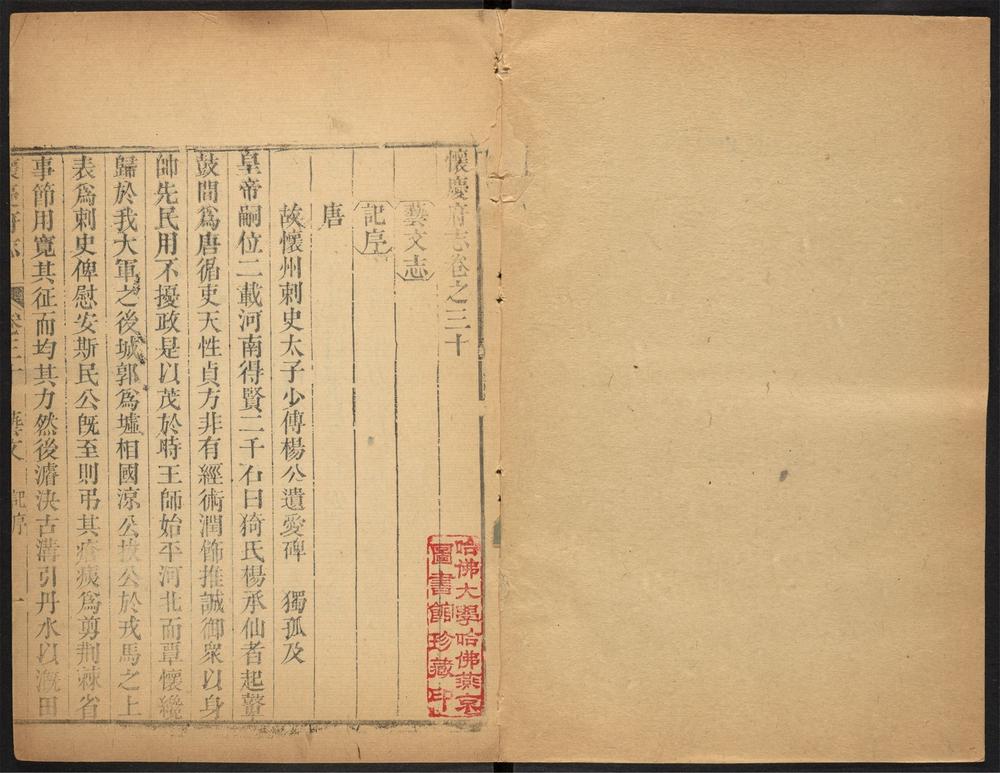 懷慶府志卷之三十
藝文志
記序
唐
故懷州刺史太子少傅楊公遺愛碑 獨孤及
皇帝嗣位二載河南得賢二千石曰猗氏楊承仙者起鼙
鼓間爲唐循吏天性貞方非有經術潤飾推誠御衆以身
師先民用不擾政是以茂於時王師始平河北而覃懷纔
歸於我大軍之後城郭爲墟相國涼公拔公於戎馬之上
表爲刺史俾慰安斯民公旣至則弔其瘡痍爲剪荆棘省
事節用寬其征而均其力然後濬決古溝引丹水以漑田
懷慶府志 卷三十 藝文 記序 一
哈佛大學哈佛燕京
圖書館珍藏印